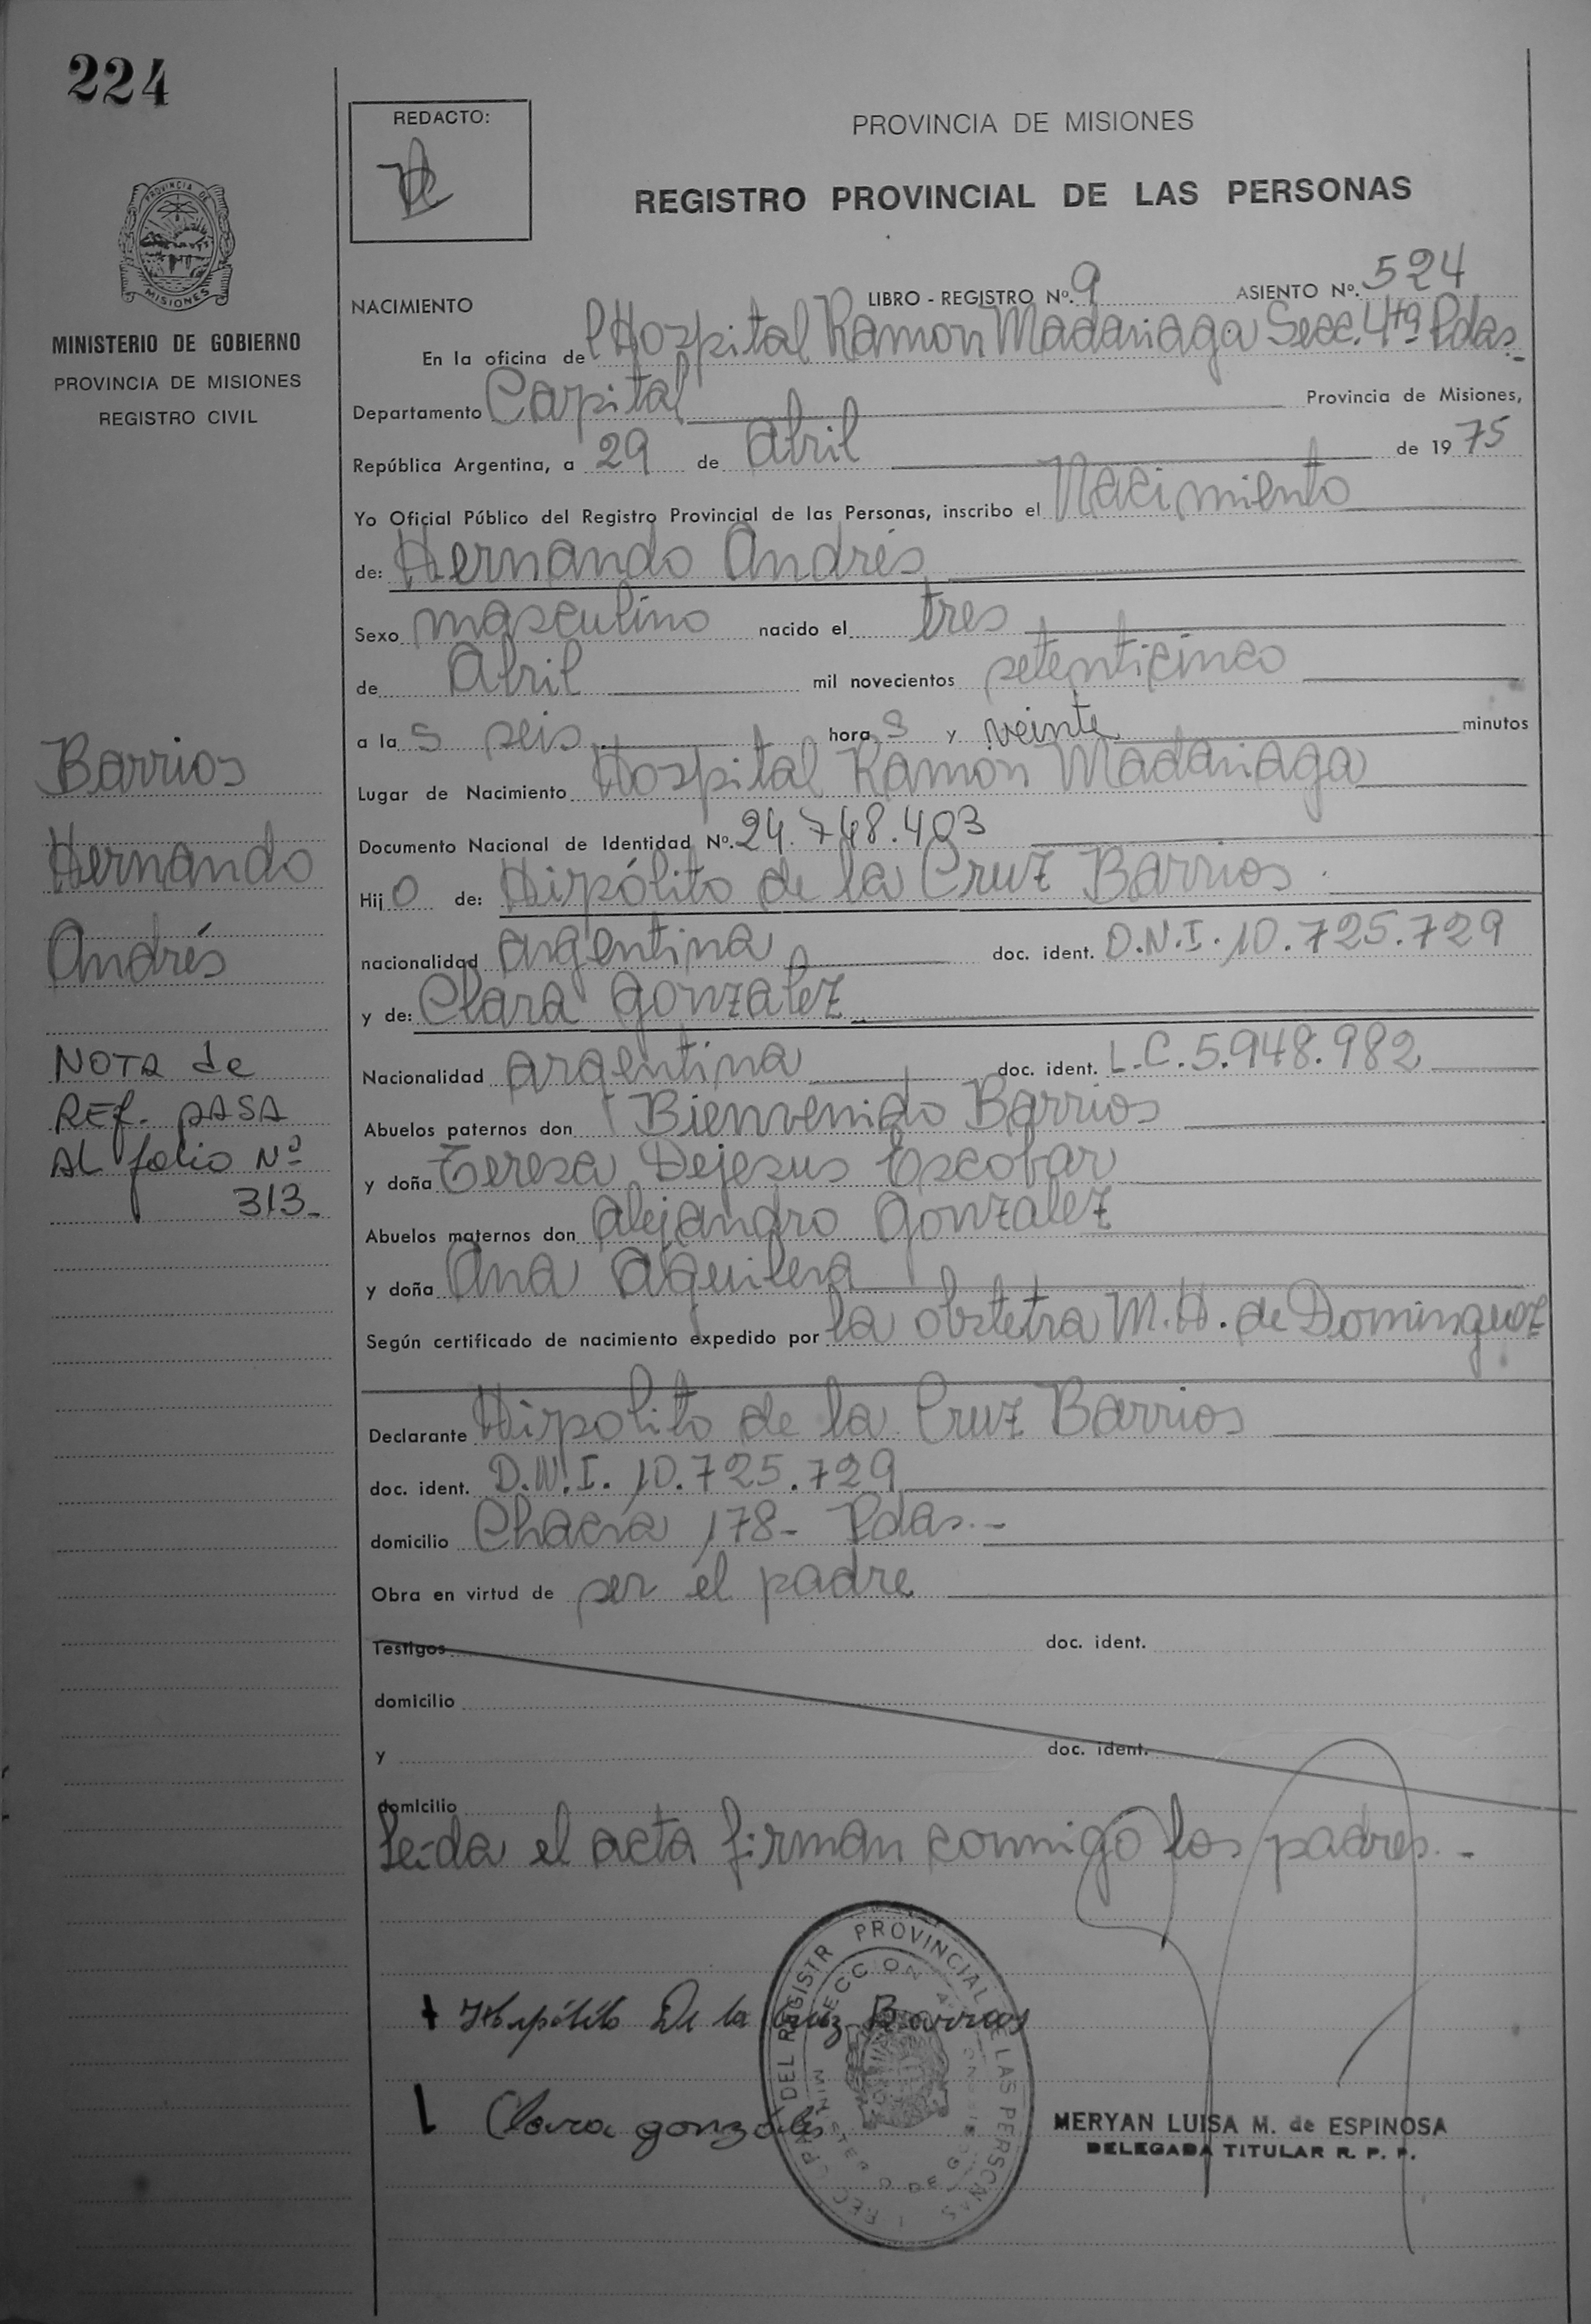 224
REDACTO:
PROVINCIA DE MISIONES
REGISTRO PROVINCIAL DE LAS PERSONAS
PROVINCIA DE
MISIONES
MINISTERIO DE GOBIERNO
PROVINCIA DE MISIONES
REGISTRO CIVIL
NACIMIENTO LIBRO - REGISTRO Nº. 9 ASIENTO Nº. 524
En la oficina de l Hospital Ramón Madariaga Secc. 4ta Pdas.-
Departamento Capital Provincia de Misiones,
República Argentina, a 29 de Abril de 1975
Yo Oficial Público del Registro Provincial de las Personas, inscribo el Nacimiento
de: Hernando Andrés
Sexo masculino nacido el tres
de Abril mil novecientos setenticinco
a la s seis hora s y veinte minutos
Lugar de Nacimiento Hospital Ramón Madariaga
Documento Nacional de Identidad Nº. 24.748.403
Hijo de: Hipólito de la Cruz Barrios
nacionalidad argentina doc. ident. D.N.I. 10.725.729
y de: Clara Gonzalez
Nacionalidad argentina doc. ident. L.C. 5.948.982
Abuelos paternos don Bienvenido Barrios
y doña Teresa Dejesus Escobar
Abuelos maternos don Alejandro Gonzalez
y doña Ana Aguilera
Según certificado de nacimiento expedido por la obstetra M.H. de Dominguez
Declarante Hipolito de la Cruz Barrios
doc. ident. D.N.I. 10.725.729
domicilio Chacra 178- Pdas.-
Obra en virtud de ser el padre
Testigos doc. ident.
domicilio
y doc. ident.
domicilio
Leída el acta firman conmigo los padres.-
Barrios
Hernando
Andrés
NOTA de
REF. PASA
AL folio Nº
313-
Hipólito De la Cruz Barrios
Clara gonzáles
MERYAN LUISA M. de ESPINOSA
DELEGADA TITULAR R. P. P.
DEL REGISTR PROVINCIAL DE LAS PERSONAS